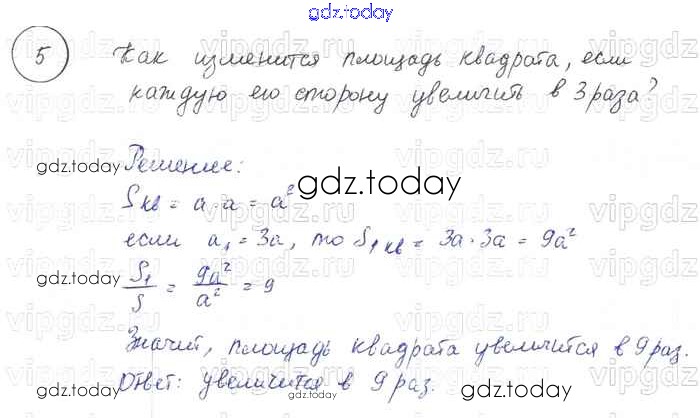 gdz.today
5 Как изменится площадь квадрата, если
каждую его сторону увеличить в 3 раза?
gdz.today
Решение:
Sкв = a · a = a²
gdz.today
если a₁ = 3a, то S₁кв = 3a · 3a = 9a²
gdz.today
S₁/S = 9a²/a² = 9
gdz.today
Значит, площадь квадрата увеличится в 9 раз.
Ответ: увеличится в 9 раз.
gdz.today
gdz.today
vipgdz.ru